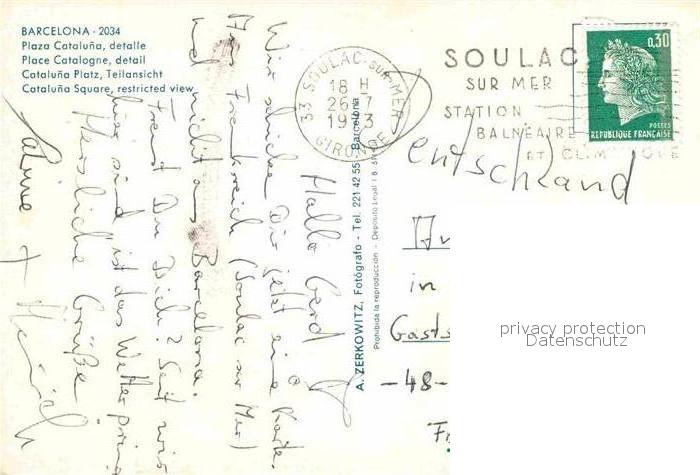 BARCELONA - 2034
Plaza Cataluña, detalle
Place Catalogne, detail
Cataluña Platz, Teilansicht
Cataluña Square, restricted view
Hallo Gerd
Wir schicken Dir jetzt eine Karte
aus Frankreich (Soulac sur Mer)
und nicht aus Barcelona.
Freust Du Dich? Seit wir
hier sind ist das Wetter prima
Herzliche Grüße
Sabine + Heinrich
A. ZERKOWITZ, Fotógrafo - Tel. 221 42 55 Barcelona
Prohibida la reproducción - Depósito Legal
33 SOULAC-SUR-MER
18 H
26-7
1973
GIRONDE
SOULAC
SUR MER
STATION
BALNÉAIRE
ET CLIM
0,30
POSTES
REPUBLIQUE FRANÇAISE
entschland
in
Gasts
-48-
privacy protection
Datenschutz